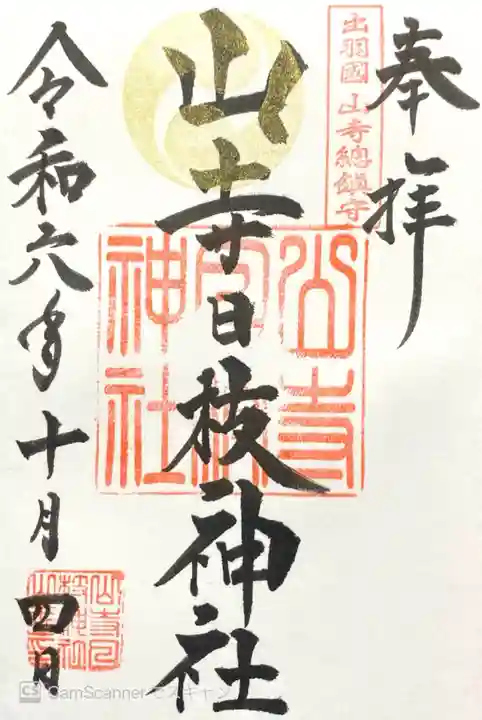 奉拝
出羽國 山寺總鎮守
山寺日枝神社
山寺
日枝
神社
令和六年十月四日
CS CamScanner でスキャン